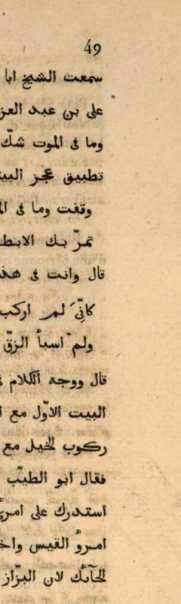 49
سمعت الشيخ ابا
على بن عبد العز
وما فى الموت شكّ
تطبيق عجز البيت
وقفت وما فى الم
تمرّ بك الابط
قال وانت فى هذ
كانّى لم اركب
ولم اسبأ الزقّ
قال ووجه الكلام ف
البيت الاوّل مع ا
ركوب الخيل مع
فقال ابو الطيّب
استدرك على امرئ
امرؤ القيس واخ
الحائك لان البزاز